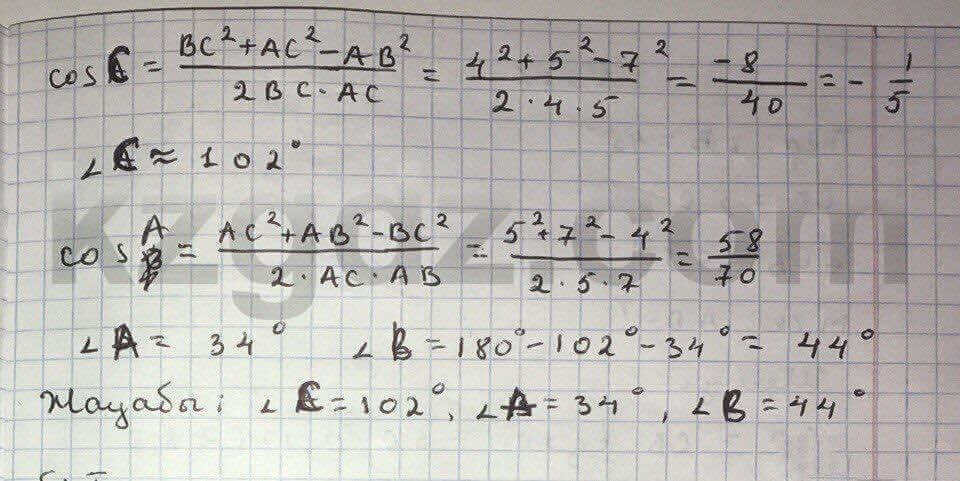 cos C = BC² + AC² - AB² / 2BC · AC = 4² + 5² - 7² / 2 · 4 · 5 = -8 / 40 = - 1/5
∠C ≈ 102°
cos A = AC² + AB² - BC² / 2 · AC · AB = 5² + 7² - 4² / 2 · 5 · 7 = 58 / 70
∠A = 34° ∠B = 180° - 102° - 34° = 44°
Жауабы: ∠C = 102°, ∠A = 34°, ∠B = 44°